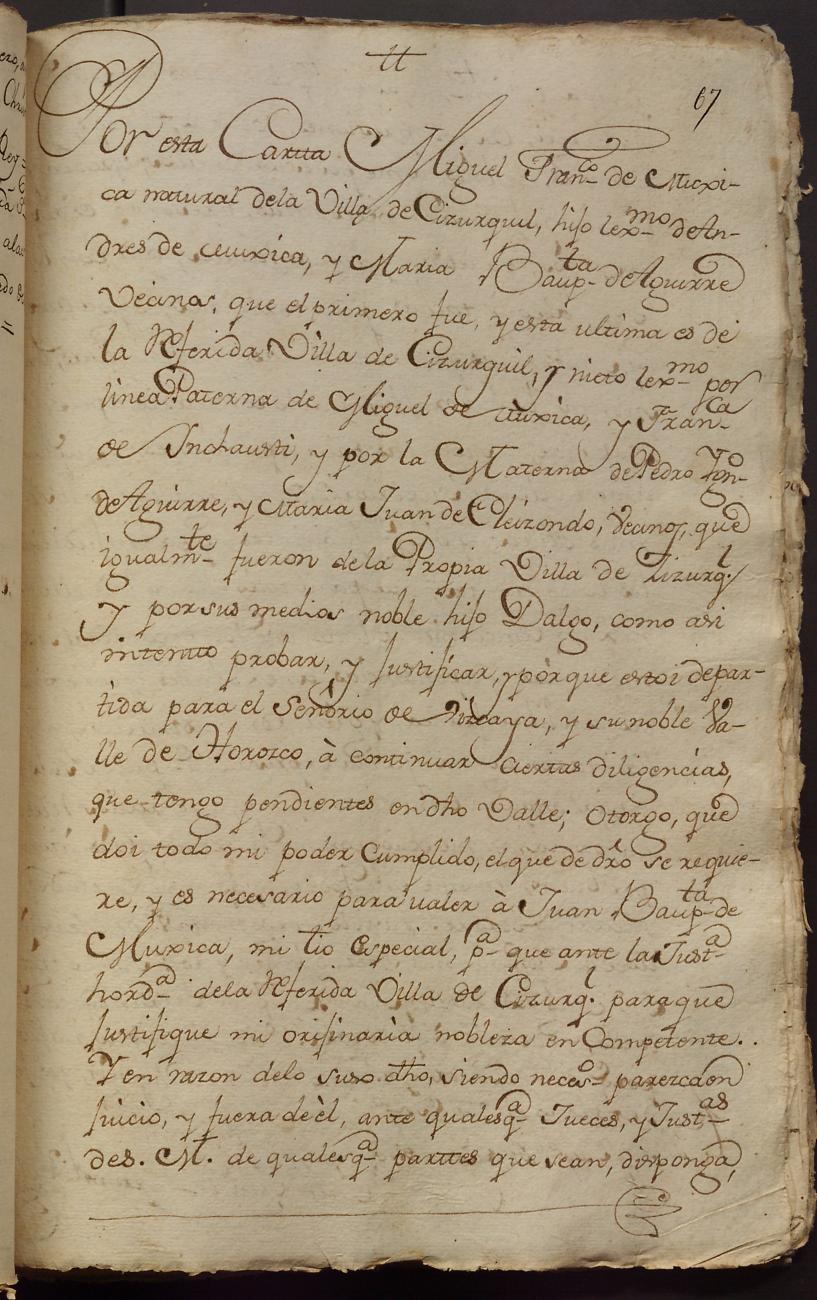 tt
67
Por esta Cartta Miguel Fran.co de Muxi-
ca natural dela Villa de Cizurquil, hijo lex.mo de An-
dres de Muxica, y Maria Baup.ta de Aguirre
Vecinos, que el primero fue, y esta ultima es de
la Referida Villa de Cizurquil, y nieto lex.mo por
linea Paterna de Miguel de Muxica, y Fran.ca
de Inchausti, y por la Materna de Pedro Ign.o
de Aguirre, y Maria Juan de Eleizondo, Vecinos, que
igualm.te fueron dela Propia Villa de Zizurq.l
y por sus medios noble hijo Dalgo, como asi
intentto probar, y justificar, y porque estoi de par-
tida para el Señorio de Vizcaya, y su noble Va-
lle de Horozco, à continuar ciertas diligencias,
que tengo pendientes en dho Valle; Otorgo, que
doi todo mi poder Cumplido, el que de dro se requie-
re, y es necesario para valer à Juan Baup.ta de
Muxica, mi tio Especial, p.a que ante la Just.a
hord.a dela Referida Villa de Cizurq.l para que
justifique mi orijinaria nobleza en Competente..
Y en razon delo suso dho, siendo neces.o parezca en
juicio, y fuera de èl, ante qualesq.a Jueces, y Just.as
de S. M. de qualesq.a parttes que sean, disponga,